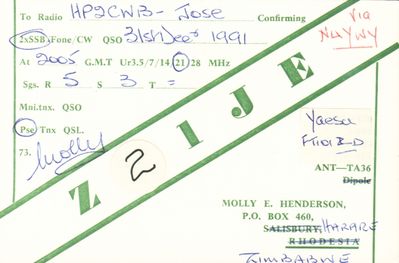 To Radio HP2CWB - Jose Confirming
via N4YNY
2xSSB Fone/CW QSO 31st Dec 1991
At 2005 G.M.T Ur3.5/7/14/21/28 MHz
Sgs. R 5 S 3 T =
Mni.tnx. QSO
Pse Tnx QSL.
73. Molly
Z 2 1JE
Yaesu
FT101B-D
ANT—TA36
Dipole
MOLLY E. HENDERSON,
P.O. BOX 460,
SALISBURY, HARARE
RHODESIA
ZIMBABWE